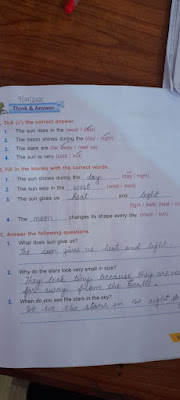 Think & Answer
Tick (✓) the correct answer.
1. The sun rises in the (west / east)
2. The moon shines during the (day / night)
3. The stars are (far away / near us)
4. The sun is very (cold / hot)
Fill in the blanks with the correct words.
1. The sun shines during the day (day / night)
2. The sun sets in the west (west / east)
3. The sun gives us heat and light
(light / dark) (heat /
4. The moon changes its shape every day. (moon / sun)
Answer the following questions.
1. What does sun give us?
The sun gives us heat and light.
2. Why do the stars look very small in size?
They look tiny because they are
far away from the Earth.
3. When do you see the stars in the sky?
We see the stars in the night